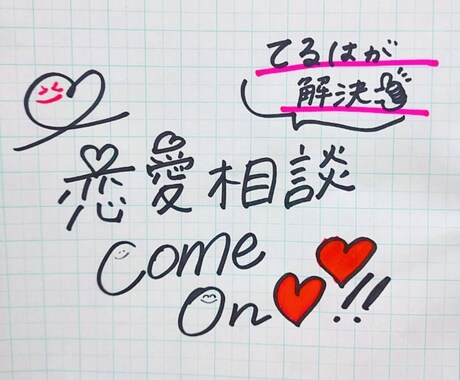 てるはが
解決
恋愛相談
Come
On!!